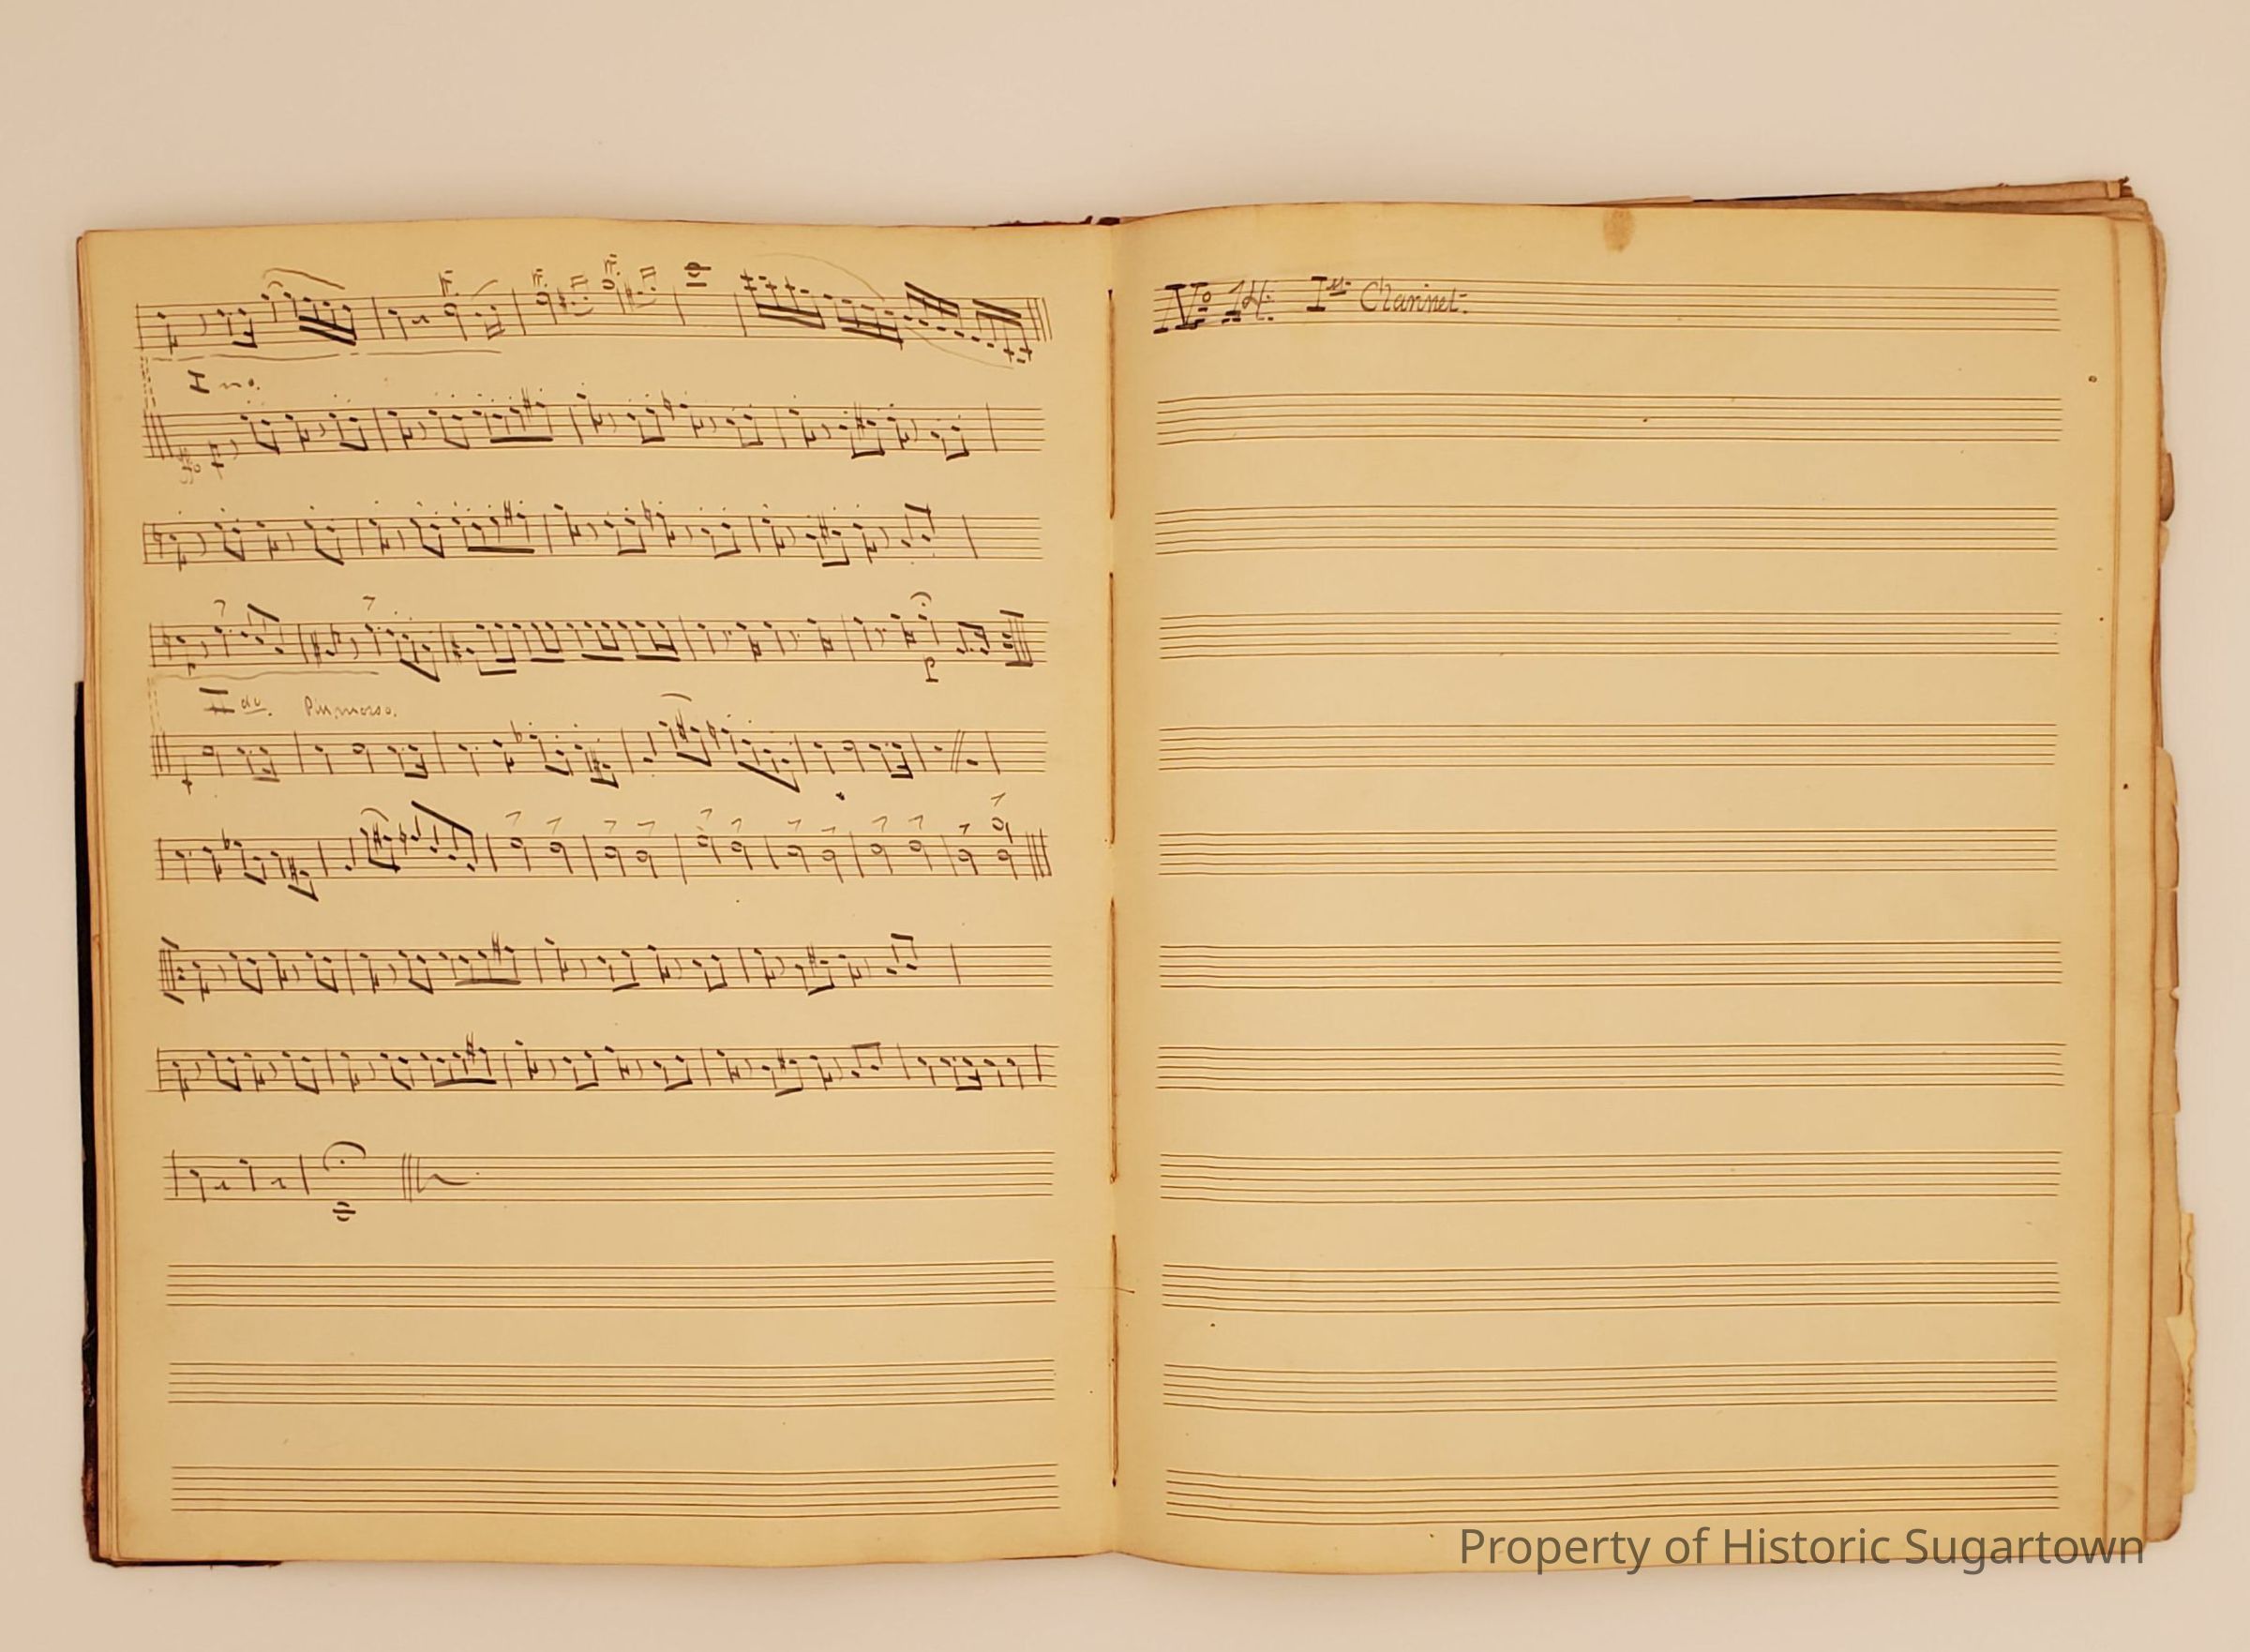 I mo.
p
II do. Piu mosso.
No 14. Ist Clarinet.
Property of Historic Sugartown